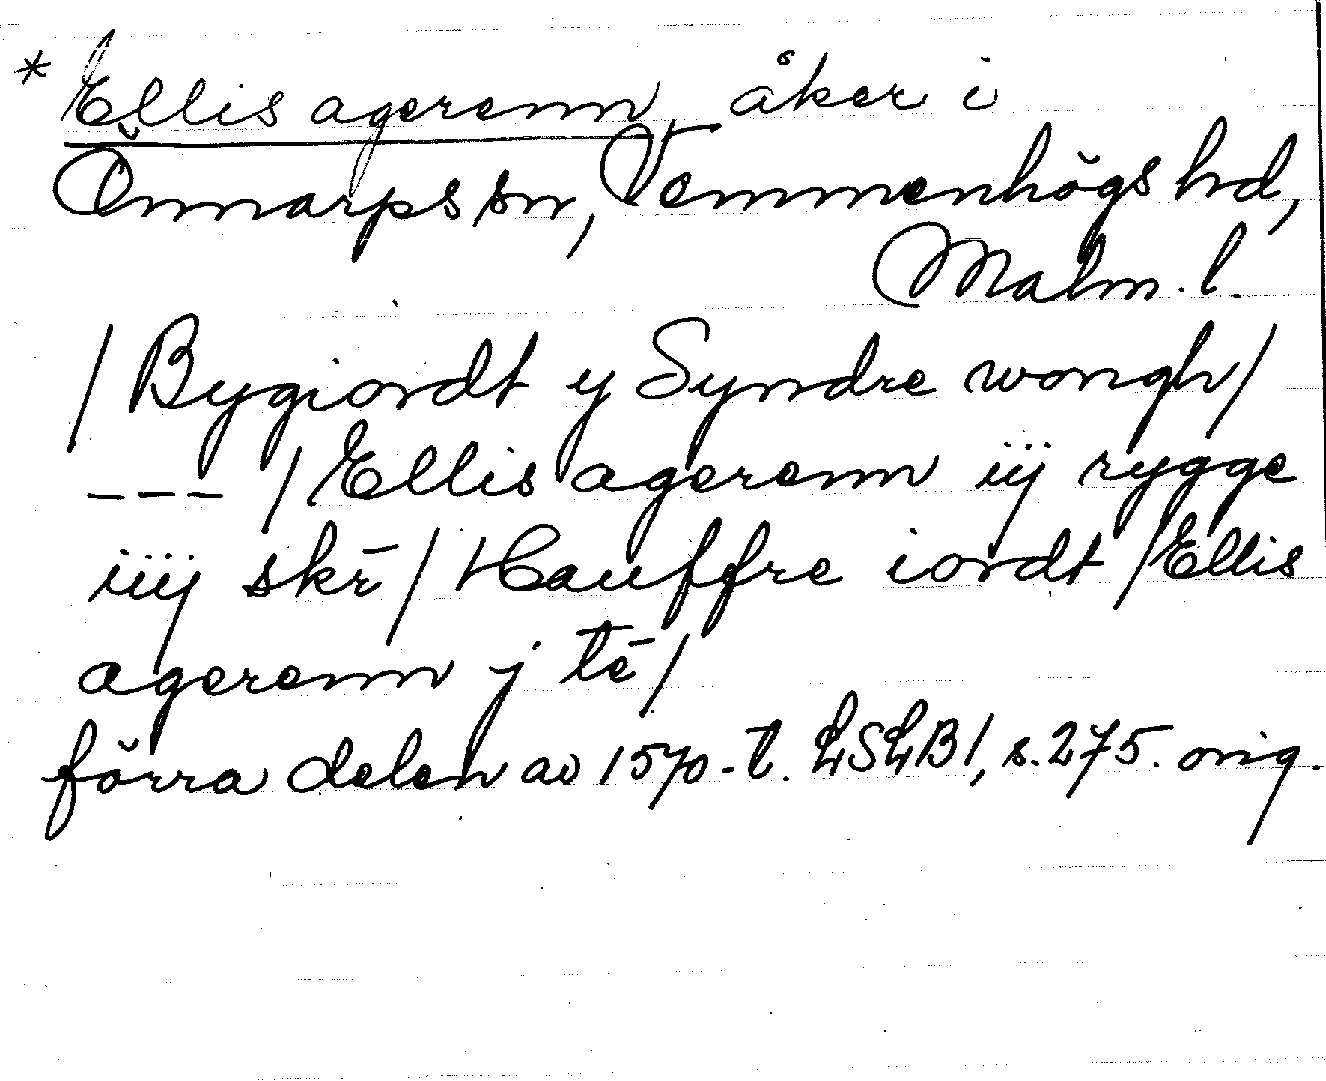 * Ellis agerenn, åker i
Önnarps sn, Vemmenhögs hd,
Malm. l.
/ Bygiordt y Syndre wongh /
--- / Ellis agerenn iij rygge
iiij skr̄ / Hauffre iordt / Ellis
agerenn j tē /
förra delen av 1570-t. LSLB1, s. 275. orig.